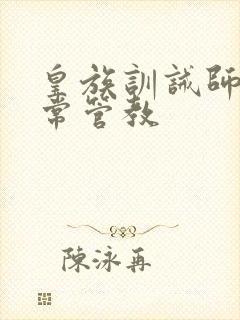 皇族訓誡師
常管教
陳泳再